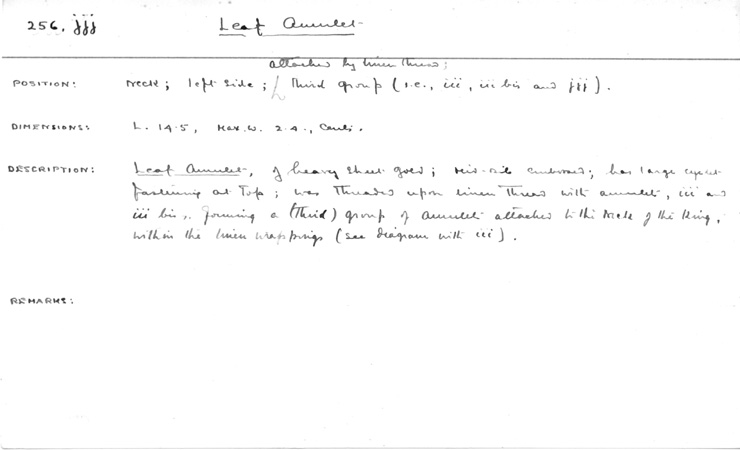 256. jjj Leaf Amulet
attached by linen thread;
POSITION: Neck; left side; third group (i.e., iii, iii bis and jjj).
DIMENSIONS: L. 14.5, Max. W. 2.4., Cents.
DESCRIPTION: Leaf Amulet, of heavy sheet gold; mid-rib embossed; has large eyelet
fastening at top; was threaded upon linen thread with amulets, iii and
iii bis, forming a (third) group of amulets attached to the neck of the King,
within the linen wrappings (see diagram with iii).
REMARKS: